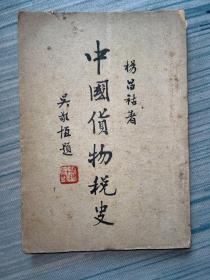 楊昌祜著
中國貨物稅史
吳敬恆題